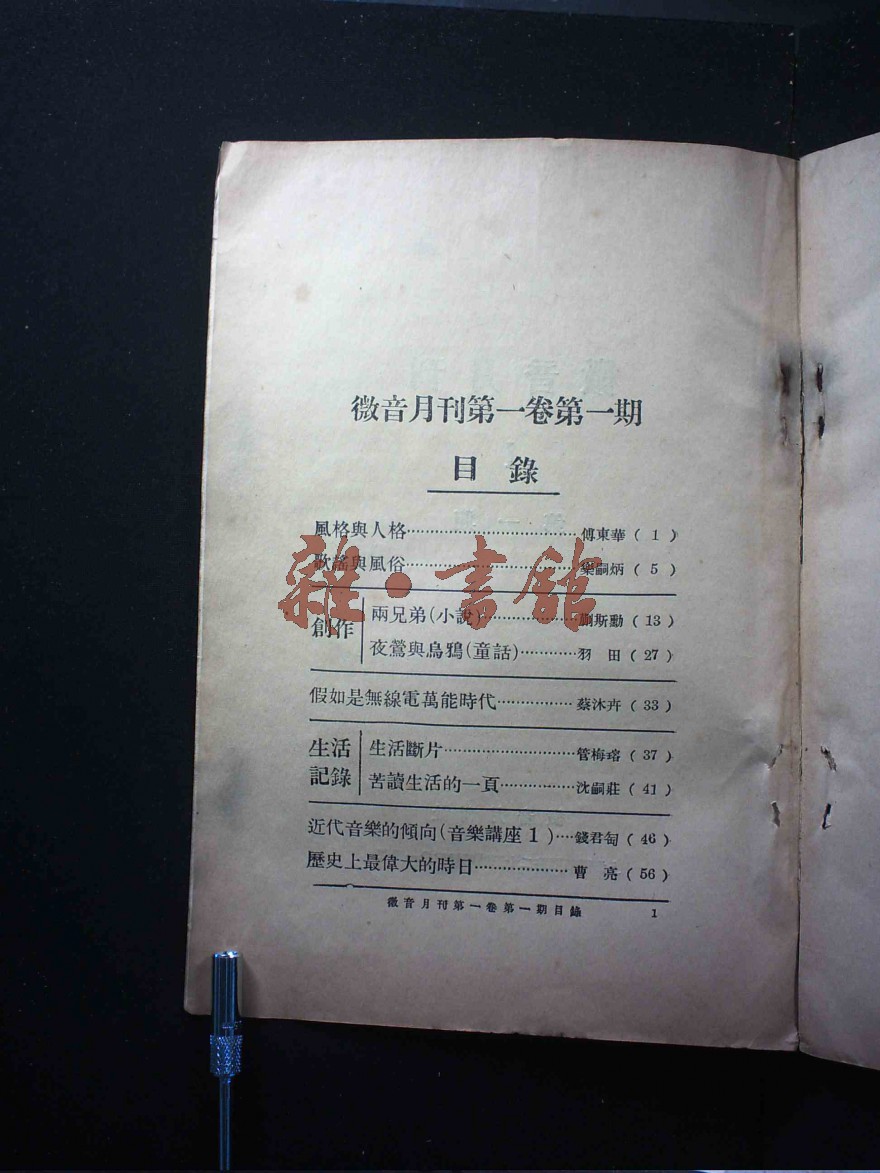 微音月刊第一卷第一期
目錄
風格與人格……………………………傅東華（1）
歌謠與風俗……………………………樂嗣炳（5）
創作
兩兄弟(小說)…………………斯勳（13）
夜鶯與烏鴉(童話)…………羽　田（27）
假如是無線電萬能時代……………蔡沐卉（33）
生活
記錄
生活斷片………………………管梅瑢（37）
苦讀生活的一頁………………沈嗣莊（41）
近代音樂的傾向(音樂講座1)…錢君匋（46）
歷史上最偉大的時日………………曹　亮（56）
微音月刊第一卷第一期目錄　1
雜·書館